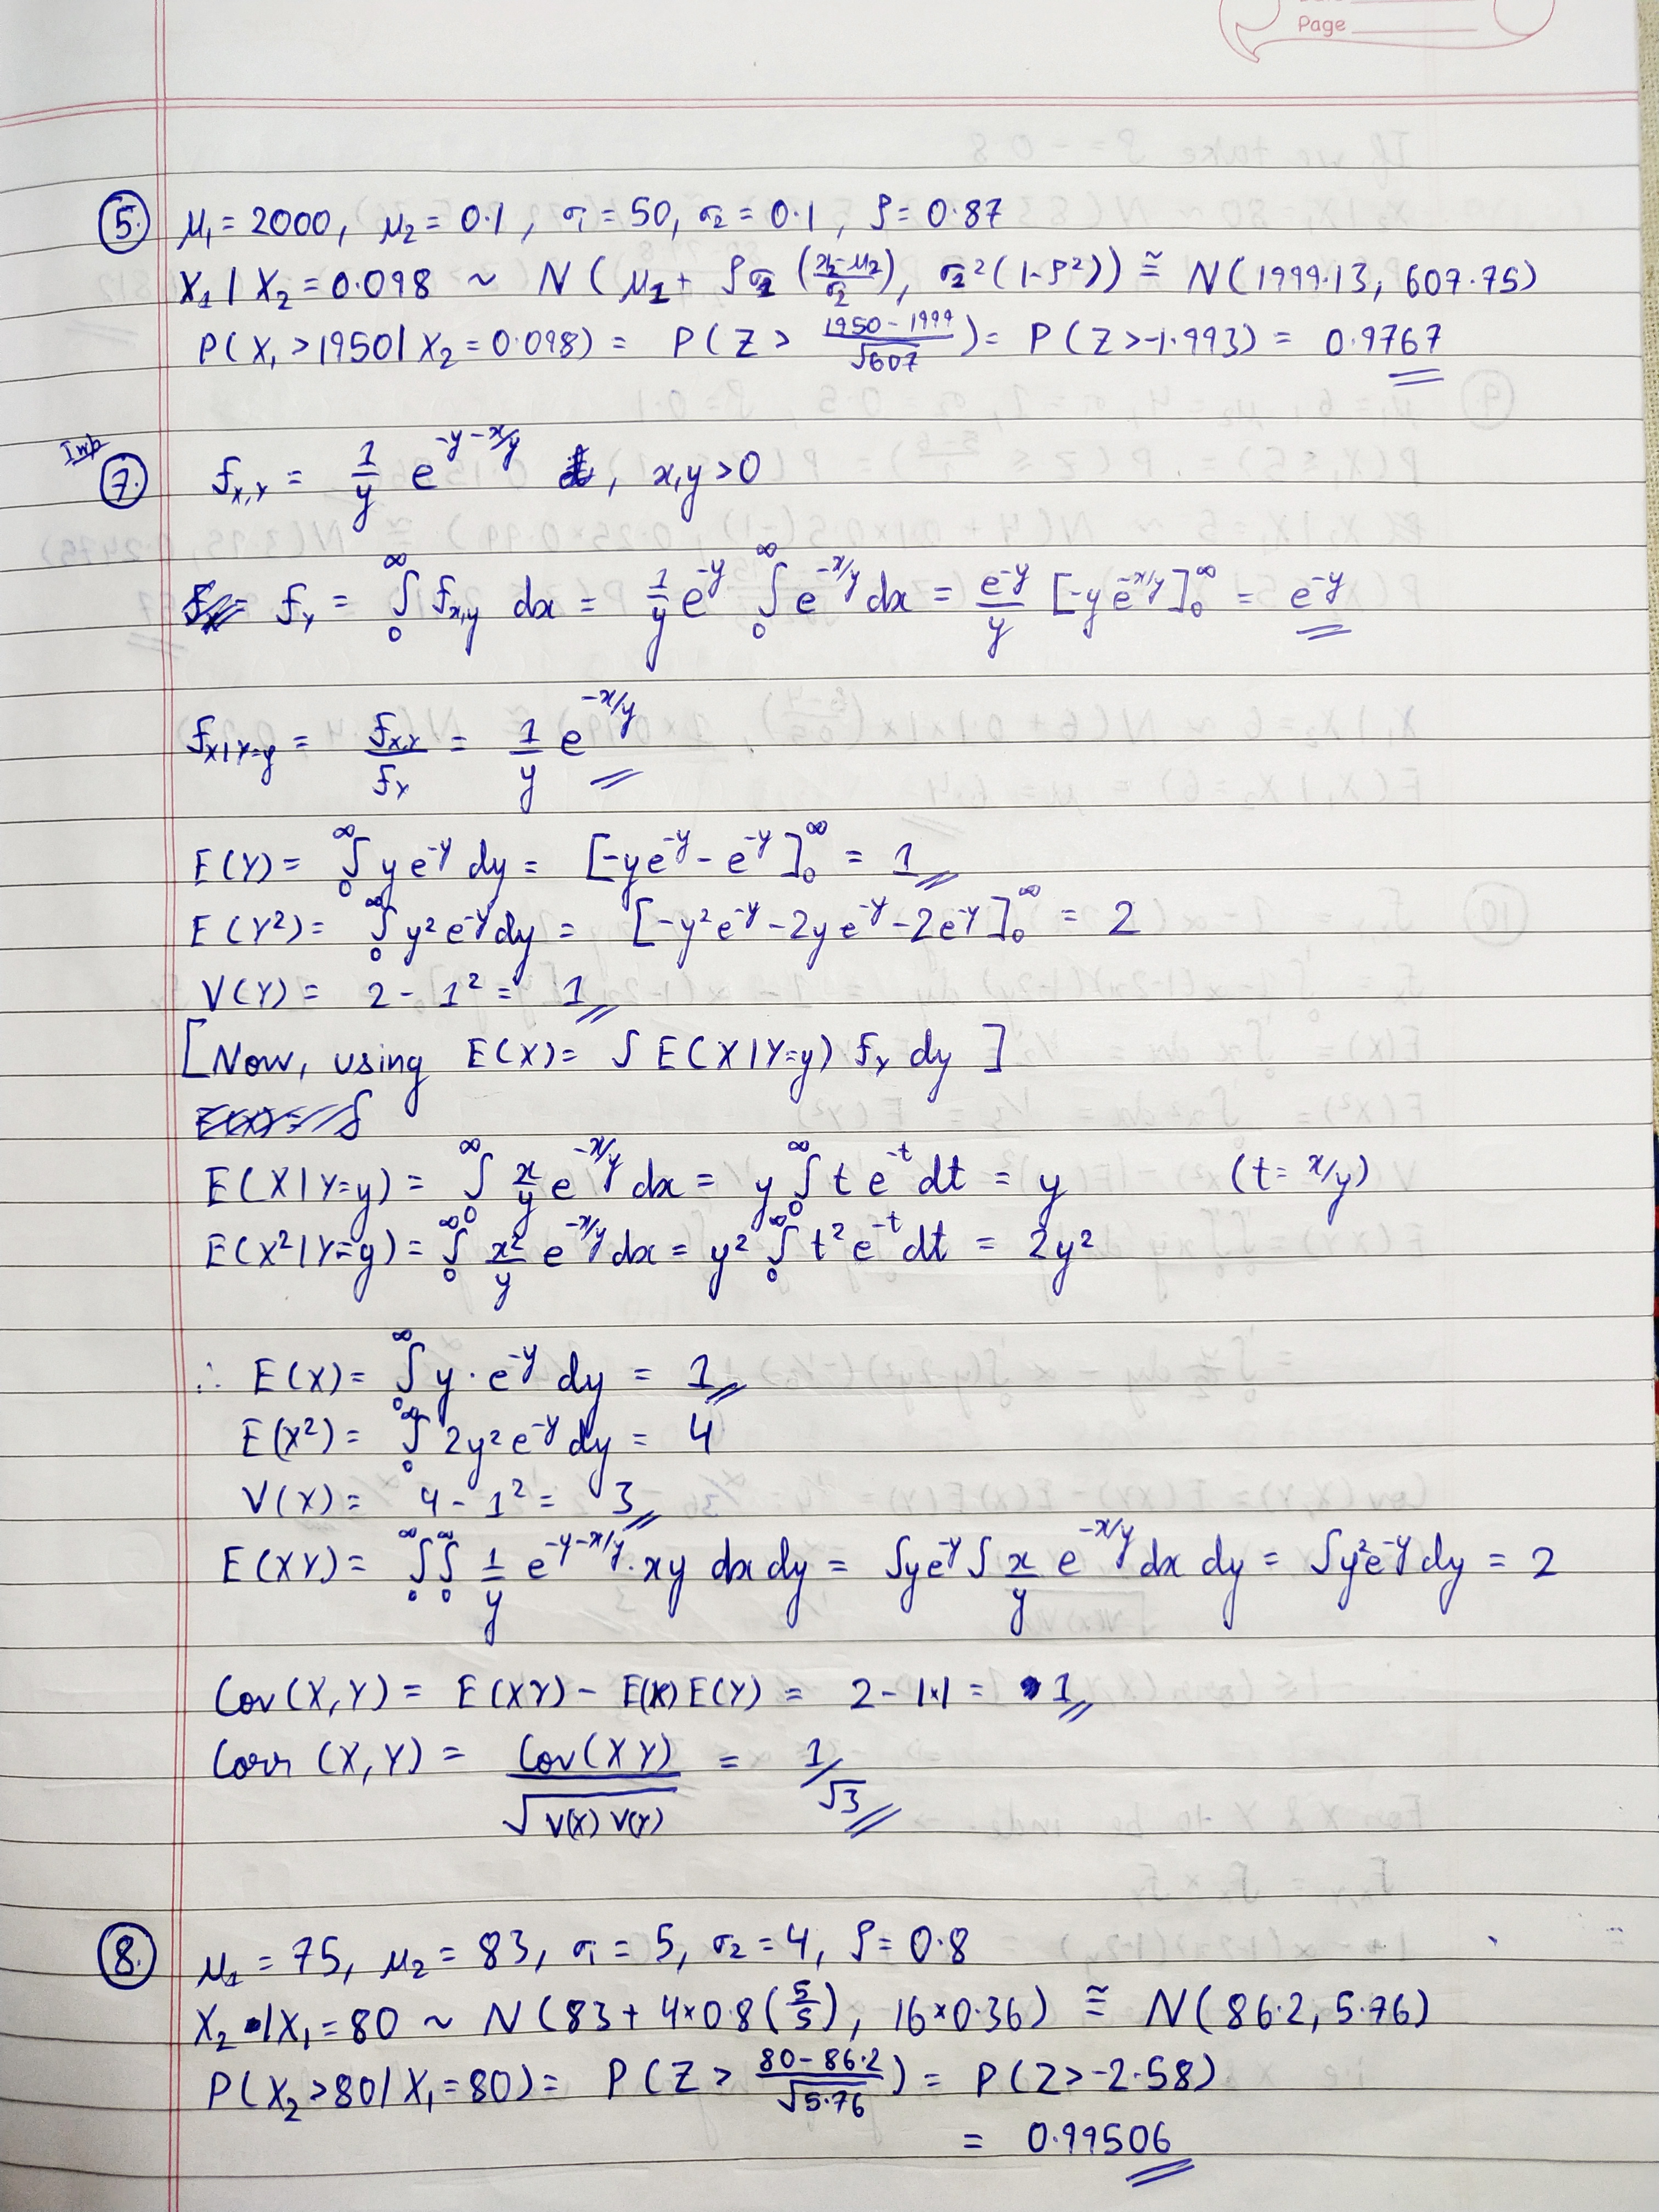 Page
5. μ₁ = 2000, μ₂ = 0.1, σ₁ = 50, σ₂ = 0.1, ρ = 0.87
X₁ | X₂ = 0.098 ~ N(μ₁ + ρσ₁ ((x₂-μ₂)/σ₂), σ₂²(1-ρ²)) ≅ N(1999.13, 607.75)
P(X₁ > 1950 | X₂ = 0.098) = P(Z > (1950-1999)/√607) = P(Z > -1.993) = 0.9767
Imp
7. f_{X,Y} = 1/y e^{-y-x/y}, x,y > 0
f_Y = ∫₀^∞ f_{X,Y} dx = 1/y e^{-y} ∫₀^∞ e^{-x/y} dx = e^{-y}/y [-y e^{-x/y}]₀^∞ = e^{-y}
f_{X|Y=y} = f_{X,Y}/f_Y = 1/y e^{-x/y}
E(Y) = ∫₀^∞ y e^{-y} dy = [-ye^{-y} - e^{-y}]₀^∞ = 1
E(Y²) = ∫₀^∞ y² e^{-y} dy = [-y²e^{-y} - 2ye^{-y} - 2e^{-y}]₀^∞ = 2
V(Y) = 2 - 1² = 1
[Now, using E(X) = ∫ E(X|Y=y) f_Y dy]
E(X|Y=y) = ∫₀^∞ x/y e^{-x/y} dx = y ∫₀^∞ t e^{-t} dt = y (t = x/y)
E(X²|Y=y) = ∫₀^∞ x²/y e^{-x/y} dx = y² ∫₀^∞ t² e^{-t} dt = 2y²
∴ E(X) = ∫₀^∞ y · e^{-y} dy = 1
E(X²) = ∫₀^∞ 2y² e^{-y} dy = 4
V(X) = 4 - 1² = 3
E(XY) = ∫₀^∞ ∫₀^∞ 1/y e^{-y-x/y} · xy dx dy = ∫ye^{-y} ∫ x/y e^{-x/y} dx dy = ∫y²e^{-y} dy = 2
Cov(X,Y) = E(XY) - E(X)E(Y) = 2 - 1×1 = 1
Corr (X,Y) = Cov(XY)/√(V(X) V(Y)) = 1/√3
8. μ₁ = 75, μ₂ = 83, σ₁ = 5, σ₂ = 4, ρ = 0.8
X₂ | X₁ = 80 ~ N(83 + 4×0.8(5/5), 16×0.36) ≅ N(86.2, 5.76)
P(X₂ > 80 | X₁ = 80) = P(Z > (80-86.2)/√5.76) = P(Z > -2.58)
= 0.99506